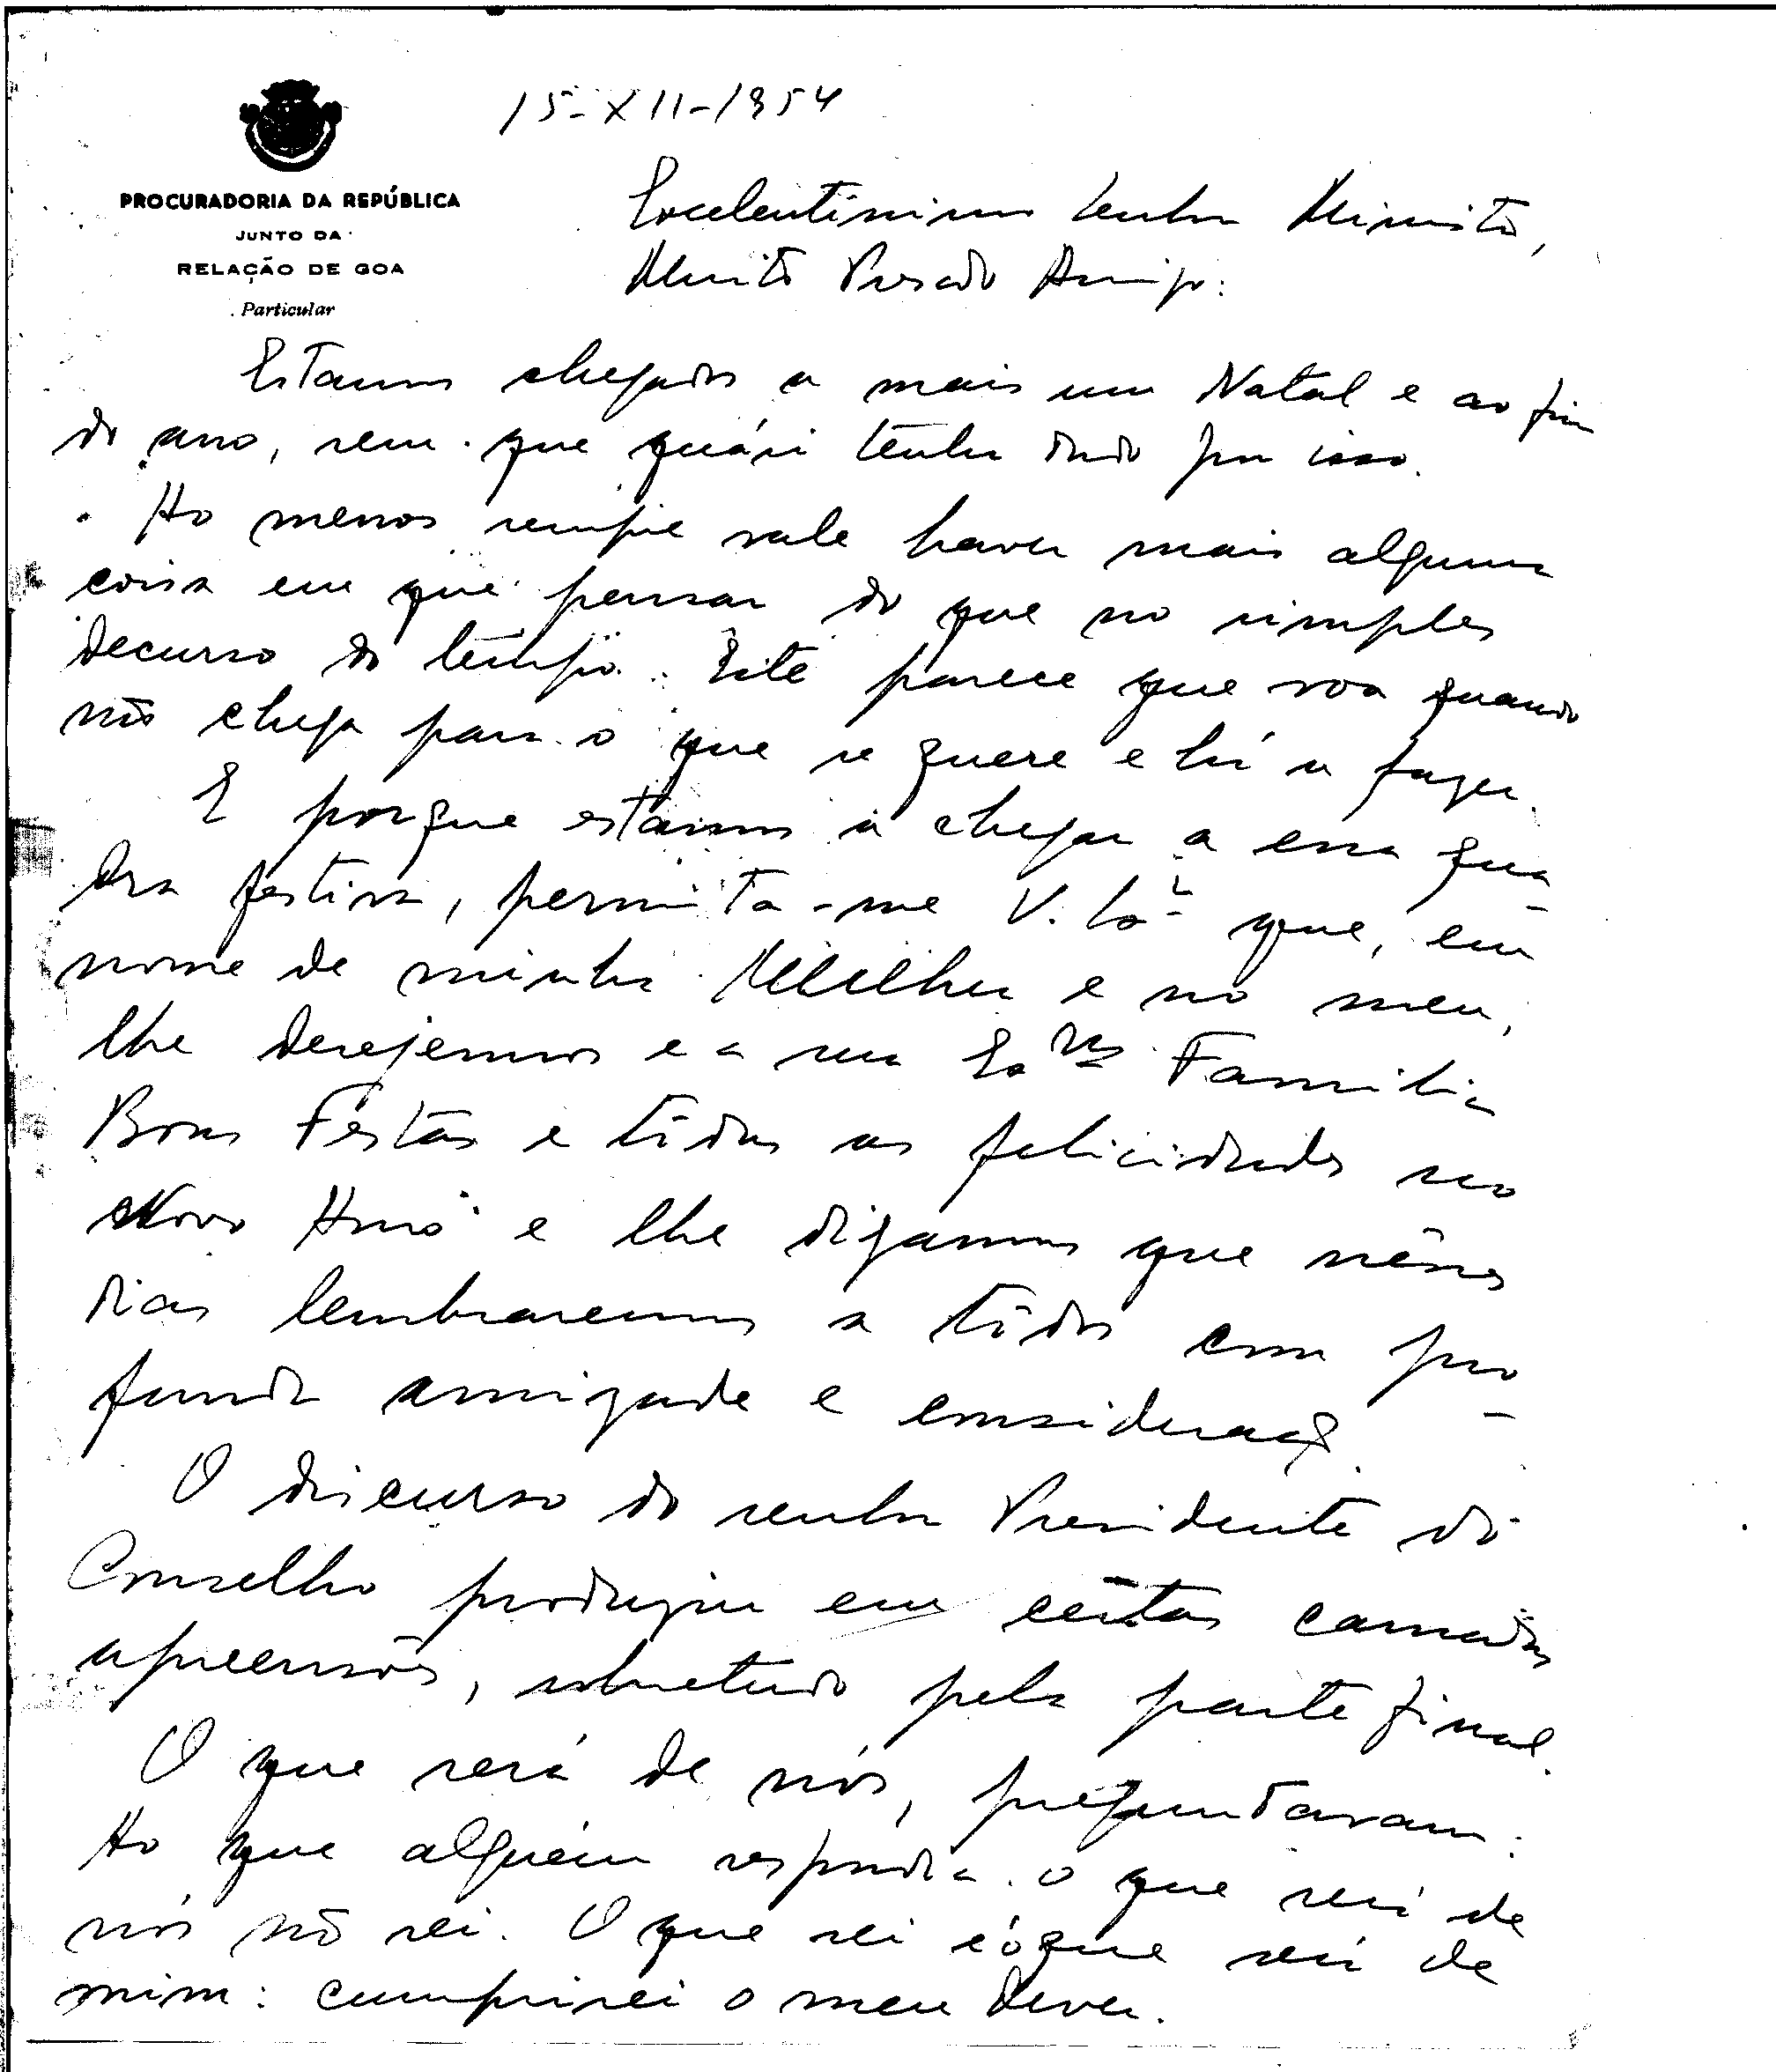 15-XII-1954
PROCURADORIA DA REPÚBLICA
JUNTO DA
RELAÇÃO DE GOA
Particular
Excelentíssimo Senhor Ministro,
Muito Prezado Amigo:
Estamos chegados a mais um Natal e ao fim
do ano, sem que quási tenha dado por isso.
Ao menos sempre vale haver mais alguma
coisa em que pensar do que no simples
decurso do tempo. Este parece que voa quando
não chega para o que se quere e há a fazer.
E porque estamos a chegar a essa qua-
dra festiva, permita-me V. Exª que, em
nome de minha Mulher e no meu,
lhe desejemos e a sua Exma Família
Boas Festas e tôdas as felicidades no
Novo Ano e lhe digamos que nêsses
dias lembraremos a todos com pro-
funda amizade e consideração.
O discurso do senhor Presidente do
Conselho produziu em certas camadas
apreensões, sobretudo pela parte final.
O que será de nós, preguntavam.
Ao que alguém respondia: o que será de
nós não sei. O que sei é o que será de
mim: cumprirei o meu dever.